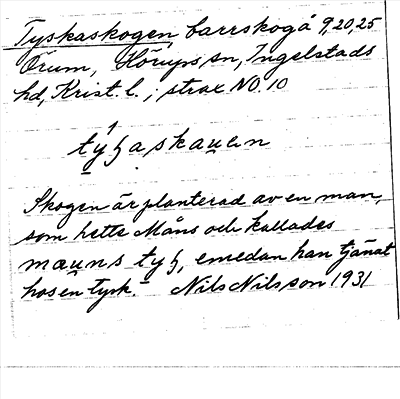 Tyskaskogen, barrskog å 9,20,25
Örum, Höüps sn, Ingelstads
hd, Krist. l.; strax NO. 10
týɧaskau̯en
Skogen är planterad av en man,
som hette Måns och kallades
mæu̯ns tyɧ, emedan han tjänat
hos en tysk. Nils Nilsson 1931